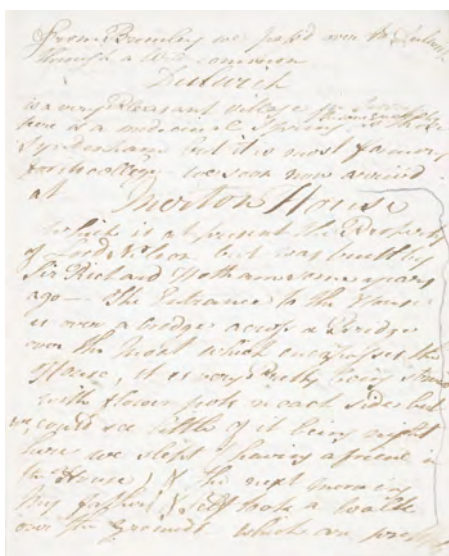 from Bromley we pass'd over to Dulwich
through a wild common
Dulwich
is a very Pleasant village
here is a medicinal Spring
Sydenham but it is most famous
for its college we soon now arrived
at Merton House
which is at present the Property
of Lord Nelson but was built by
Sir Richard Hotham some years
ago — The Entrance to the House
is over a bridge across a Bridge
over the Moat which encompasses the
House, it is very Pretty being
with flower pots on each side but
we could see little of it being night
here we slept (having a friend in
the House) & the next morning
my father & Self took a walk
over the grounds which are